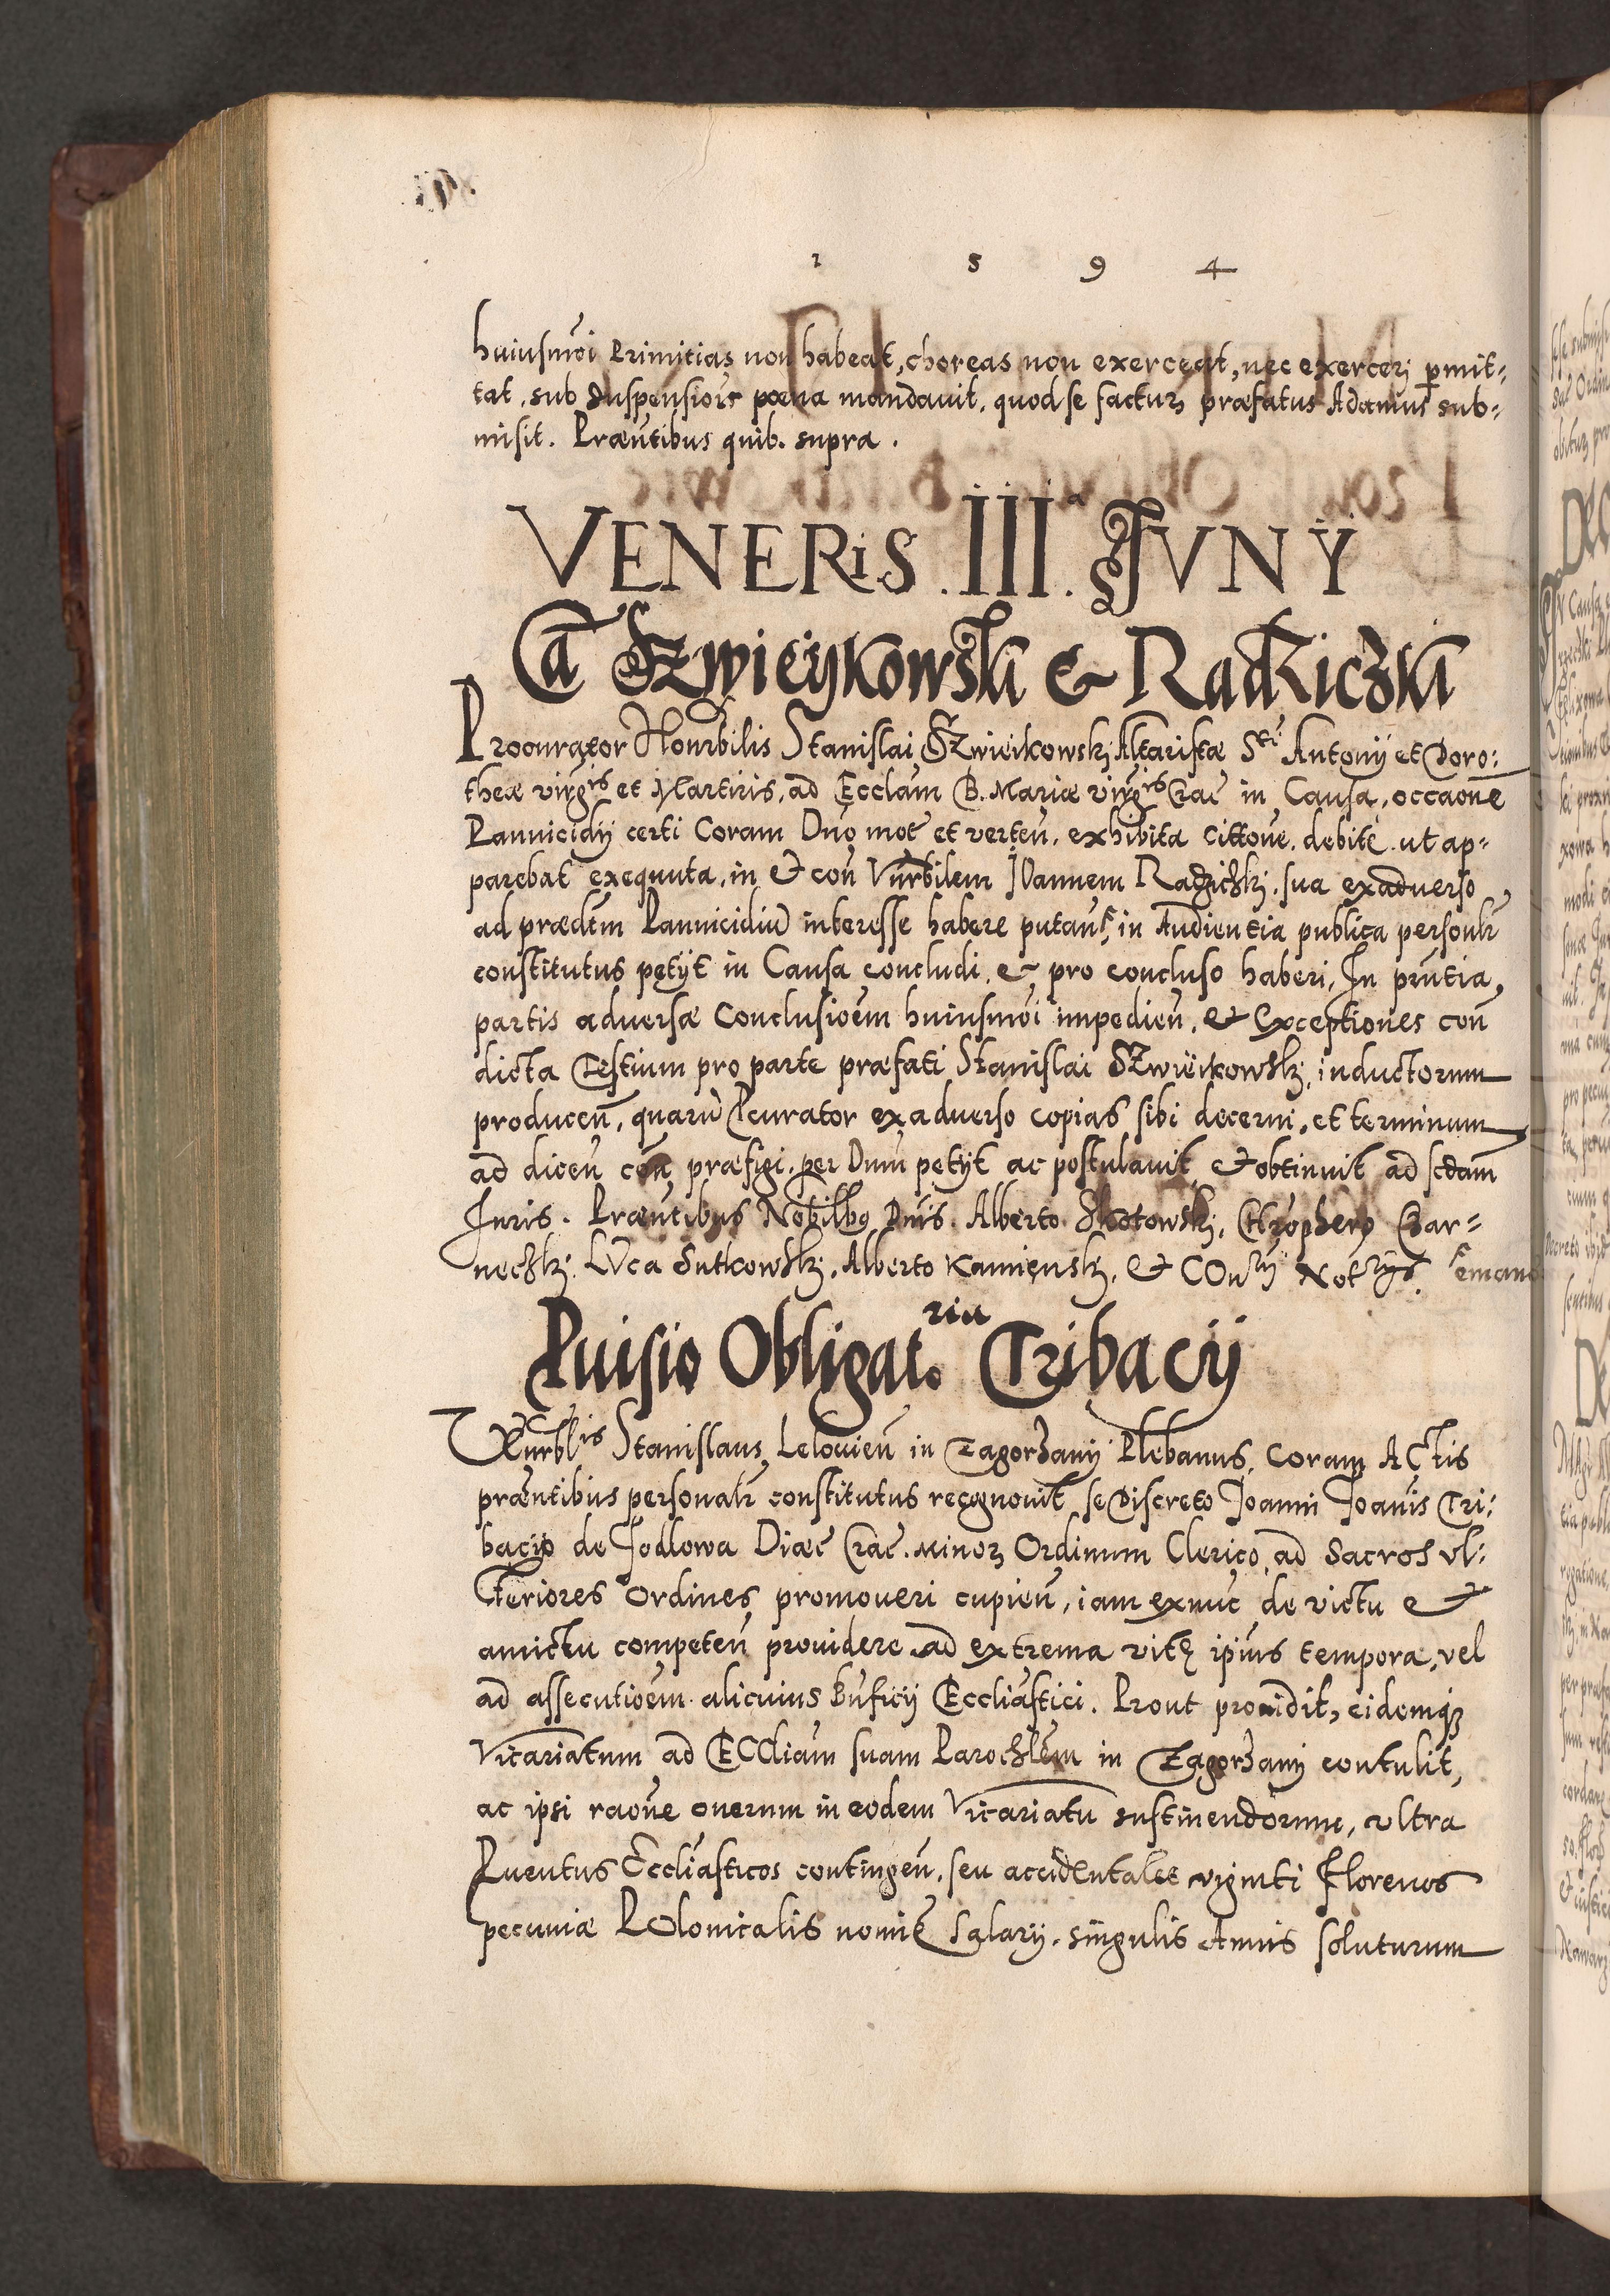 1 5 9 4
huiusmoi Primitias non habeat, choreas non exerceat, nec exercerj permit=
tat, sub suspensiois poena mandauit, quod se facturz præfatus Adamus sub=
misit. Præntibus quib. supra.
VENERiS . III.a JVNŸ
Ca Szwieykowski & Radziczki
Procurator Honrbilis Stanislai Szwieikowskj Altaristæ Sti Antonij et Doro:
theæ virgis et Martiris, ad Ecclam B. Mariæ virgis Crac in Causa, occaone
Pannicidij certi Coram Dno mot et verten. exhibita cittone. debite. ut ap=
parebat exequuta, in & con Vnrbilem IOannem Radzichkj. sua exadverso
ad prædtm Pannicidiu interesse habere putan, in Audientia publica personlr
constitutus petijt in Causa concludi. & pro concluso haberi, In prntia,
partis adversæ Conclusioem huiusmoi impedien, & Exceptiones con
dicta Testium pro parte præfati Stanislai Szwieikowskj, inductorum
producen, quaru Pcurator exadverso copias sibi decerni, et terminum
ad dicen con præfigi. per Dnm petijt ac postulavit, & obtinuit ad scdam
Juris. Præntibus Nobilbq Dnis. Alberto Skotowskj, Chrophero Czar=
nechkj. LVca Sutkowskj. Alberto Kamienskj. & COnrij Notrijs. emano
Puisio Obligat.ria Tribacij
VEnrblis Stanislaus Lelovien in Zagorzany Plebanus, Coram ACtis
præntibus personalr constitutus recognovit, se Discreto Joanni Joanis Tri:
bacijo de Jodlowa Diæc Crac. Minorz Ordinum Clerico, ad Sacros vl:
teriores Ordines promoveri cupien, iam exnuc de victu &
amictu competen providere ad extrema vitę ipius tempora, vel
ad assecutioem alicuius Bnficij Eccliastici. Prout providit, eidemqz
Vicariatum ad ECCliam suam Parochlem in Zagorzany contulit,
ac ipsi raone onerum in eodem Vicariatu sustinendorum, vltra
Puentus Eccliasticos contingen, seu accidentales viginti Florenos
pecuniæ POlonicalis nomie Salarij. singulis Annis soluturum